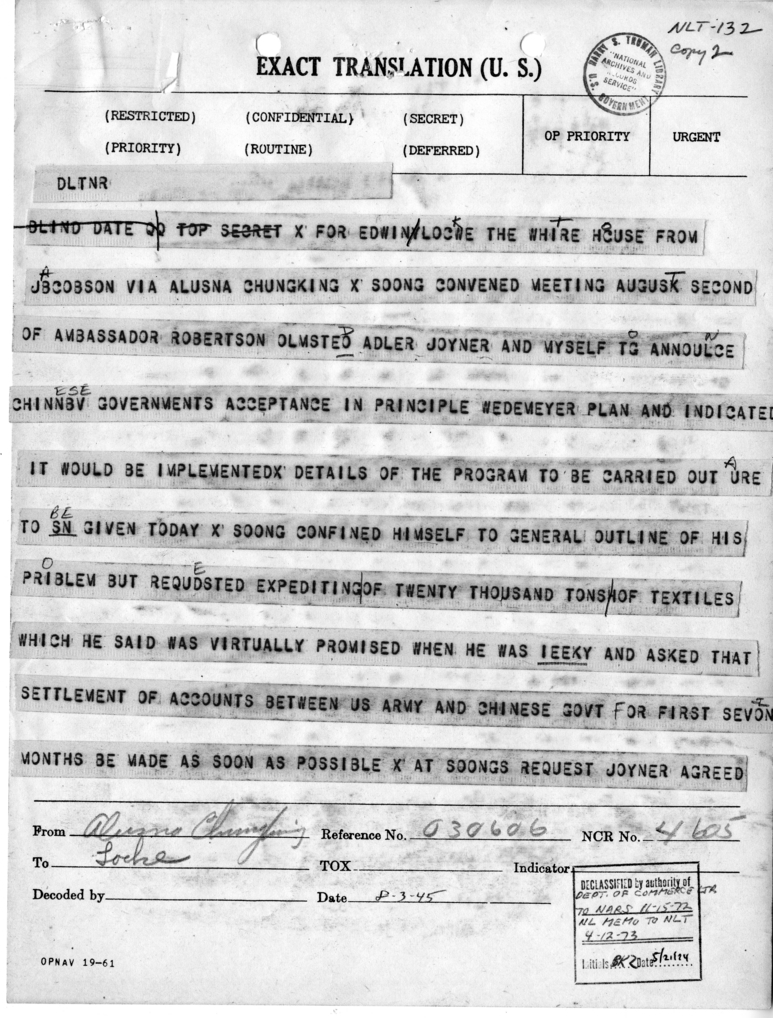 NLT-132
Copy 2
HARRY S. TRUMAN LIBRARY
"NATIONAL
ARCHIVES AND
RECORDS
SERVICE"
U.S. GOVERNMENT
EXACT TRANSLATION (U. S.)
(RESTRICTED) (CONFIDENTIAL) (SECRET) OP PRIORITY URGENT
(PRIORITY) (ROUTINE) (DEFERRED)
DLTNR
BLIND DATE QQ TOP SECRET X' FOR EDWIN LOCWE THE WHIRE HCUSE FROM
K T O
JBCOBSON VIA ALUSNA CHUNGKING X' SOONG CONVENED MEETING AUGUSK SECOND
A T
OF AMBASSADOR ROBERTSON OLMSTEO ADLER JOYNER AND MYSELF TG ANNOULCE
D O N
CHINNBV GOVERNMENTS ACCEPTANCE IN PRINCIPLE WEDEMEYER PLAN AND INDICATED
ESE
IT WOULD BE IMPLEMENTEDX' DETAILS OF THE PROGRAM TO BE CARRIED OUT URE
A
TO SN GIVEN TODAY X' SOONG CONFINED HIMSELF TO GENERAL OUTLINE OF HIS
BE
PRIBLEM BUT REQUDSTED EXPEDITING OF TWENTY THOUSAND TONSHOF TEXTILES
O E
WHICH HE SAID WAS VIRTUALLY PROMISED WHEN HE WAS IEEKY AND ASKED THAT
SETTLEMENT OF ACCOUNTS BETWEEN US ARMY AND CHINESE GOVT FOR FIRST SEVON
MONTHS BE MADE AS SOON AS POSSIBLE X' AT SOONGS REQUEST JOYNER AGREED
From Alusna Chungking Reference No. 030606 NCR No. 4605
To Locke TOX Indicator
Decoded by Date 8-3-45
DECLASSIFIED by authority of
DEPT. OF COMMERCE LTR
TO NARS 11-15-72
NL MEMO TO NLT
4-12-73
Initials Date 5/21/74
OPNAV 19-61